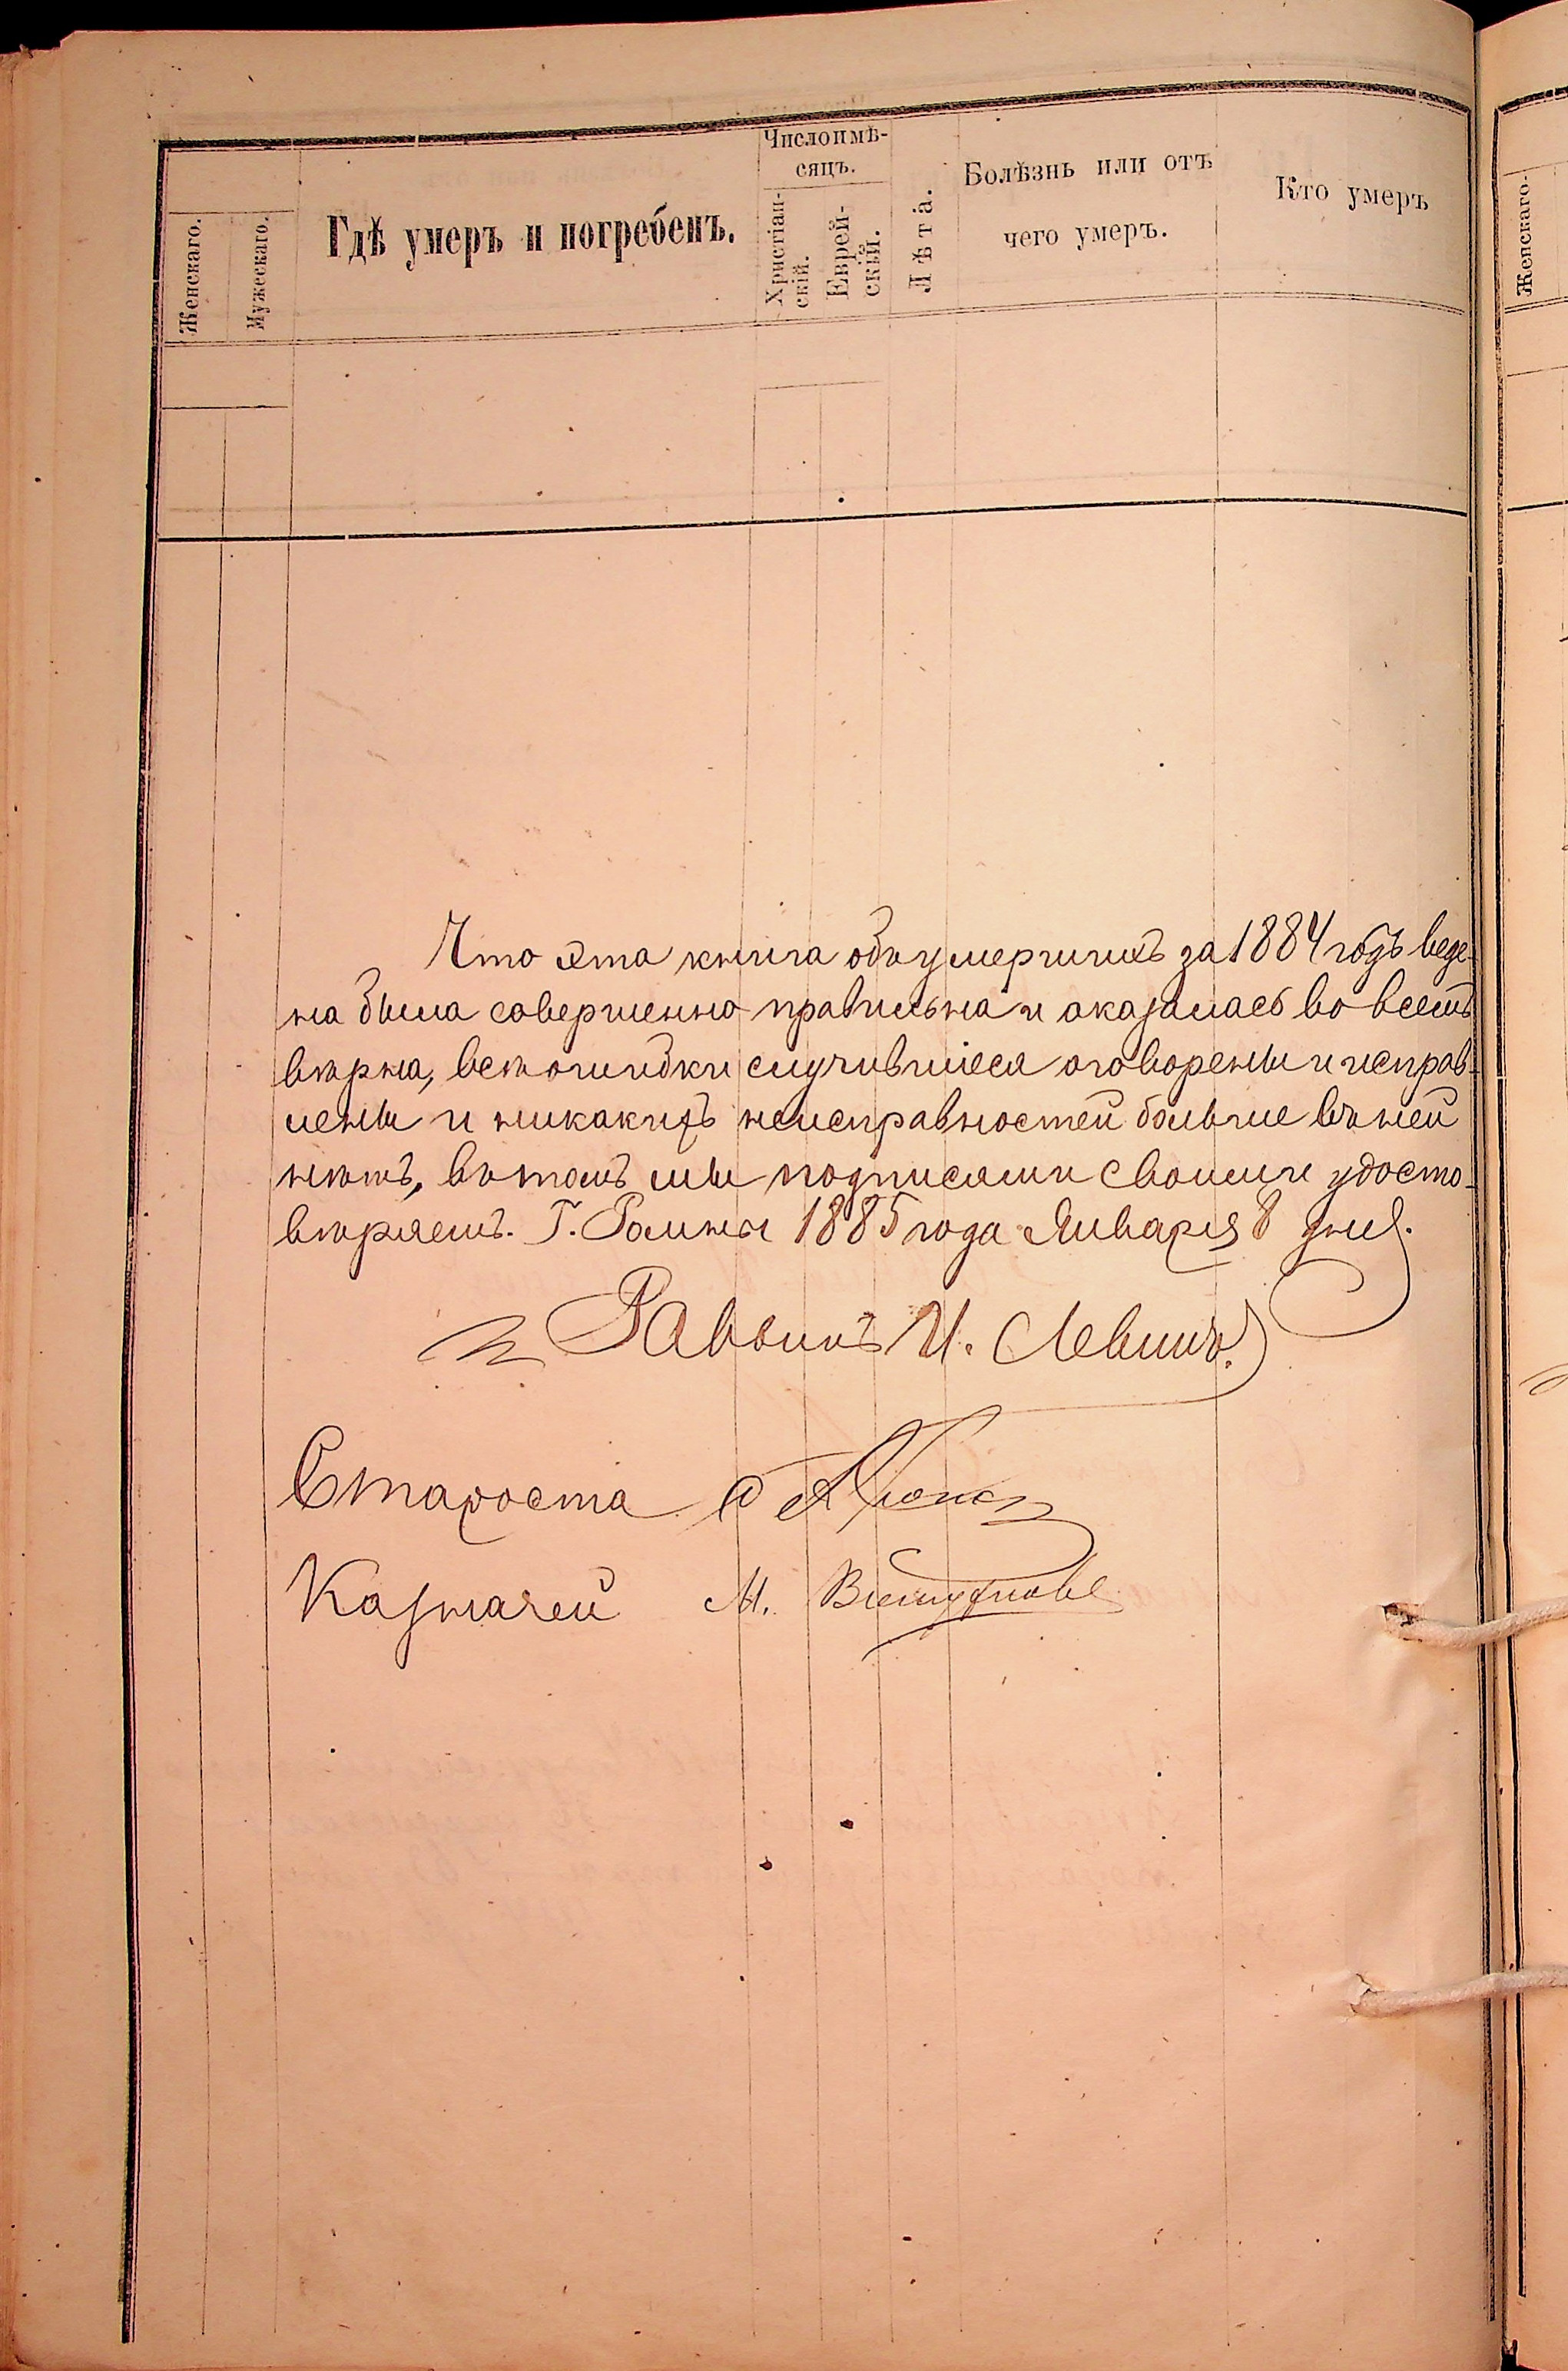 Женскаго.
Мужескаго.
Гдѣ умеръ и погребенъ.
Число и мѣ-
сяцъ.
Христіан-
скій.
Еврей-
скій.
Лѣта.
Болѣзнь или отъ
чего умеръ.
Кто умеръ
Женскаго.
Что эта книга объ умершихъ за 1884 годъ веде-
на была совершенно правильна и оказалась во всемъ
вѣрна, всѣ ошибки случившіеся оговорены и исправ-
лены и никакихъ неисправностей больше въ ней
нѣтъ, въ томъ мы подписями своими удосто-
вѣряемъ. Г. Ромны 1885 года Января 8 дня.
Раввинъ И. Левинъ.
Староста
Казначей М.